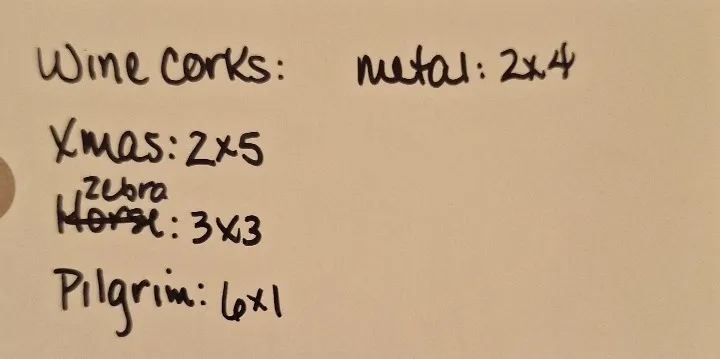 Wine Corks: metal: 2x4
Xmas: 2x5
Zebra
Horse: 3x3
Pilgrim: 6x1